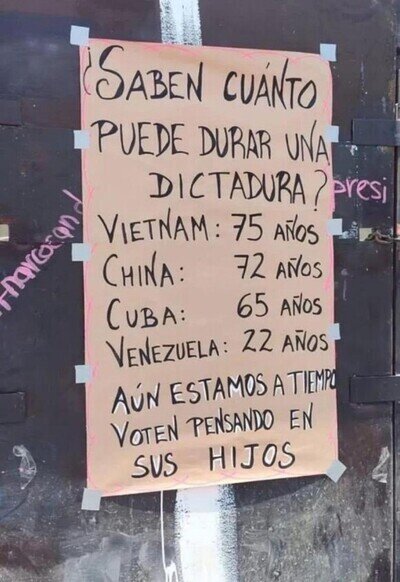 ¿SABEN CUÁNTO
PUEDE DURAR UNA
DICTADURA?
VIETNAM: 75 AÑOS
CHINA: 72 AÑOS
CUBA: 65 AÑOS
VENEZUELA: 22 AÑOS
AÚN ESTAMOS A TIEMPO
VOTEN PENSANDO EN
SUS HIJOS
presi